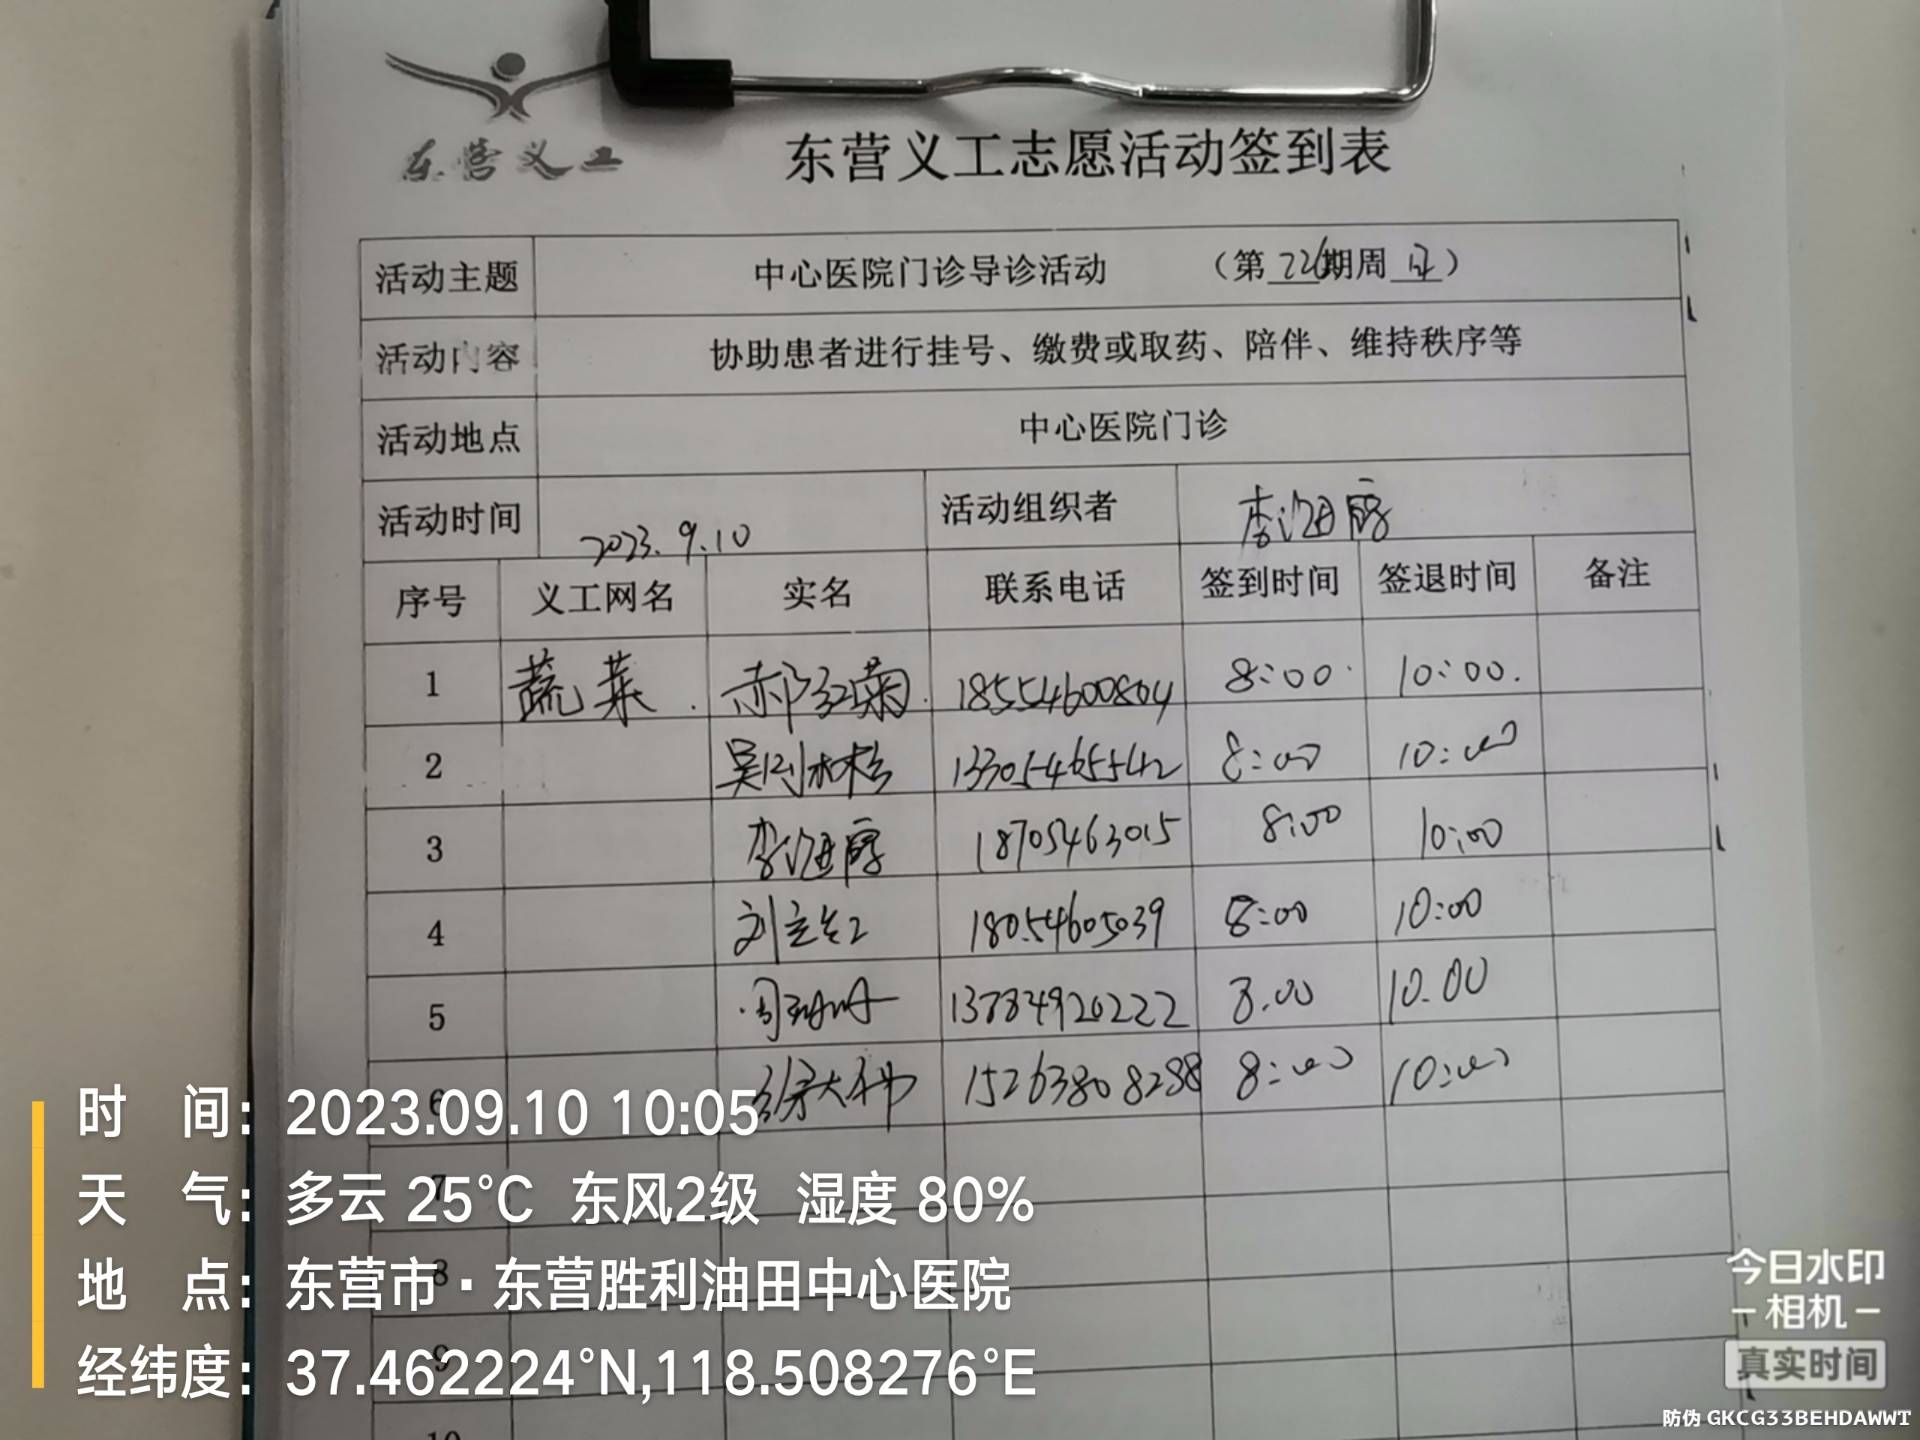 东营义工
东营义工志愿活动签到表
活动主题 中心医院门诊导诊活动 （第226期周日）
活动内容 协助患者进行挂号、缴费或取药、陪伴、维持秩序等
活动地点 中心医院门诊
活动时间 2023.9.10 活动组织者 李
序号 义工网名 实名 联系电话 签到时间 签退时间 备注
1 蔬菜. 郝红菊. 18554600804 8:00. 10:00.
2 吴 13305465542 8:00 10:00
3 李 18705463015 8:00 10:00
4 刘 18054605039 8:00 10:00
5 周 13784920222 8.00 10.00
6 徐 15263808288 8:00 10:00
7
8
9
10
时 间：2023.09.10 10:05
天 气：多云 25℃ 东风2级 湿度 80%
地 点：东营市·东营胜利油田中心医院
经纬度：37.462224°N,118.508276°E
今日水印
-相机-
真实时间
防伪 GKCG33BEHDAWWT